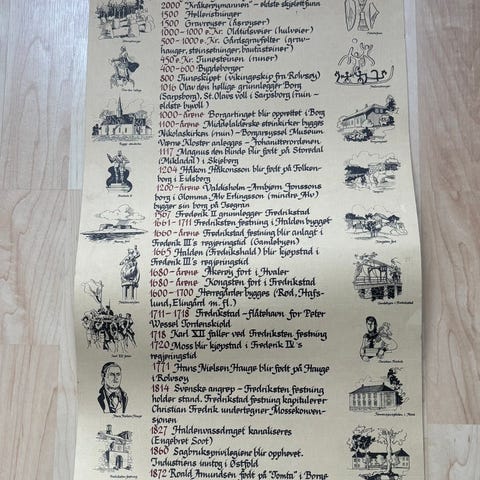 2000 "Kråkerøymannen" - eldste skjelettfunn
1500 Helleristninger
1500 Gravrøyser (åsrøyser)
1000-1000 e.Kr. Oldtidsveier (hulveier)
500-1000 e.Kr. Gårdsgravfelter (grav-
hauger, steinsetninger, bautasteiner)
450 e.Kr. Tunesteinen (runer)
400-600 Bygdeborger
800 Tuneskipet (vikingeskip fra Rolvsøy)
1016 Olav den hellige grunnlegger Borg
(Sarpsborg). St. Olavs voll i Sarpsborg (ruin -
eldste byvoll)
1000-årene Borgartinget blir opprettet i Borg
1100-årene Middelalderske steinkirker bygges
Nikolaskirken (ruin) - Borgarsyssel Museum
Værne Kloster anlegges - Johanitterordenen
1117 Magnus den blinde blir født på Storedal
(Mikladal) i Skjeberg
1204 Håkon Håkonsson blir født på Folken-
borg i Eidsberg
1200-årene Valdisholm - Ambjørn Jonssons
borg i Glomma. Alv Erlingsson (mindre Alv)
bygger sin borg på Isegran
1567 Frederik II grunnlegger Fredrikstad
1661-1711 Fredriksten festning i Halden bygget
1660-årene Fredrikstad festning blir anlagt i
Frederik III's regjeringstid (Gamlebyen)
1665 Halden (Frikshald) blir kjøpstad i
Frederik III's regjeringstid
1680-årene Akerøy fort i Hvaler
1680-årene Kongsten fort i Fredrikstad
1600-1700 Herregårder bygges (Rød, Hafs-
lund, Elingård m. fl.)
1711-1718 Fredrikstad - flåtehavn for Peter
Wessel Tordenskiold
1718 Karl XII faller ved Fredriksten festning
1720 Moss blir kjøpstad i Frederik IV's
regjeringstid
1771 Hans Nielsen Hauge blir født på Hauge
i Rolvsøy
1814 Svenske angrep - Fredriksten festning
holder stand. Fredrikstad festning kapitulerer
Christian Fredrik undertegner Mossekonven-
sjonen
1827 Haldenvassdraget kanaliseres
(Engebret Soot)
1860 Sagbruksprivilegiene blir opphevet.
Industriens inntog i Østfold
1872 Roald Amundsen født på "Tomta" i Borge
Karl XII faller
Hans Nielsen Hauge
Fredriksten festning
Kongsten fort